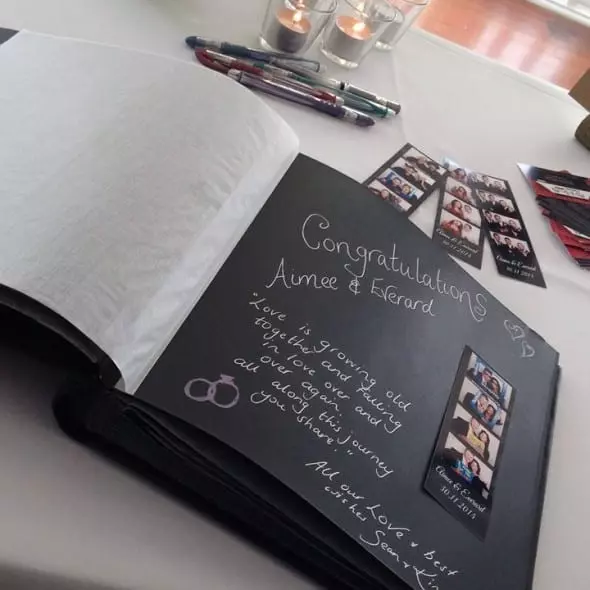 Congratulations
Aimee & Everard
"Love is growing old
together and falling
in love over and
over again
all along this journey
you share."
All our Love & best
wishes
Sean &
Aimee & Everard
30.11.2014
Aimee & Everard
30.11.2014
Aimee & Everard
30.11.2014